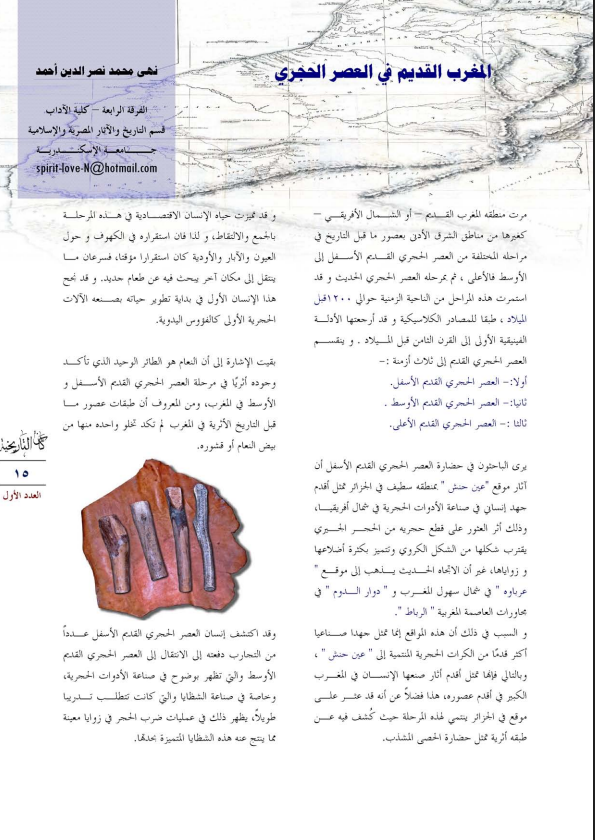 المغرب القديم في العصر الحجري
نهى محمد نصر الدين أحمد
الفرقة الرابعة – كلية الآداب
قسم التاريخ والآثار المصرية والإسلامية
جـــامعـة الإسكنـــدريـة
spirit-love-N@hotmail.com
مرت منطقه المغرب القـديم – أو الشـــمال الأفريقـي –
كغيرها من مناطق الشرق الأدنى بعصور ما قبل التاريخ في
مراحله المختلفة من العصر الحجري القـديم الأسـفل إلى
الأوسط فالأعلى ، ثم بمرحله العصر الحجري الحديث و قد
استمرت هذه المراحل من الناحية الزمنية حوالي ١٢٠٠قبل
الميلاد ، طبقا للمصادر الكلاسيكية و قد أرجعتها الأدلـة
الفينيقية الأولى إلى القرن الثامن قبل المـيلاد . و ينقســم
العصر الحجري القديم إلى ثلاث أزمنة :-
أولا:- العصر الحجري القديم الأسفل.
ثانيا:- العصر الحجري القديم الأوسط .
ثالثا :- العصر الحجري القديم الأعلى.
يرى الباحثون في حضارة العصر الحجري القديم الأسفل أن
آثار موقع "عين حنش " بمنطقه سطيف في الجزائر تمثل أقدم
جهد إنساني في صناعة الأدوات الحجرية في شمال أفريقيـا،
وذلك أثر العثور على قطع حجريه من الحجـر الجـيري
يقترب شكلها من الشكل الكروي وتتميز بكثرة أضلاعها
و زواياها، غير أن الاتجاه الحـديث يـذهب إلى موقـع "
عرباوه " في شمال سهول المغـرب و " دوار الـدوم " في
مجاورات العاصمة المغربية " الرباط ".
و السبب في ذلك أن هذه المواقع إنما تمثل جهدا صـناعيا
أكثر قدمًا من الكرات الحجرية المنتمية إلى " عين حنش " ،
وبالتالي فإنها تمثل أقدم أثار صنعها الإنسـان في المغـرب
الكبير في أقدم عصوره، هذا فضلاً عن أنه قد عثـر علـى
موقع في الجزائر ينتمي لهذه المرحلة حيث كُشف فيه عـن
طبقه أثرية تمثل حضارة الحصى المشذب.
و قد تميزت حياه الإنسان الاقتصـادية في هـذه المرحلـة
بالجمع والالتقاط، و لذا فان استقراره في الكهوف و حول
العيون والآبار والأودية كان استقرارا مؤقتا، فسرعان مـا
ينتقل إلى مكان آخر يبحث فيه عن طعام جديد. و قد نجح
هذا الإنسان الأول في بداية تطوير حياته بصـنعه الآلات
الحجرية الأولى كالفؤوس اليدوية.
بقيت الإشارة إلى أن النعام هو الطائر الوحيد الذي تأكـد
وجوده أثريًا في مرحلة العصر الحجري القديم الأسـفل و
الأوسط في المغرب، ومن المعروف أن طبقات عصور مـا
قبل التاريخ الأثرية في المغرب لم تكد تخلو واحده منها من
بيض النعام أو قشوره.
وقد اكتشف إنسان العصر الحجري القديم الأسفل عـدداً
من التجارب دفعته إلى الانتقال إلى العصر الحجري القديم
الأوسط والتي تظهر بوضوح في صناعة الأدوات الحجرية،
وخاصة في صناعة الشظايا والتي كانت تتطلـب تـدريبا
طويلاً، يظهر ذلك في عمليات ضرب الحجر في زوايا معينة
مما ينتج عنه هذه الشظايا المتميزة بحدتها.
كان التاريخية
١٥
العدد الأول